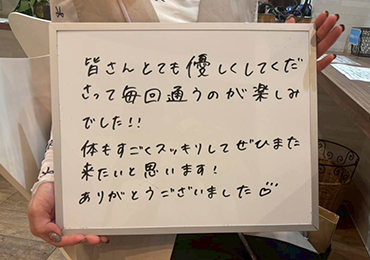 皆さんとても優しくしてくだ
さって毎回通うのが楽しみ
でした!!
体もすごくスッキリしてぜひまた
来たいと思います!
ありがとうございました♡